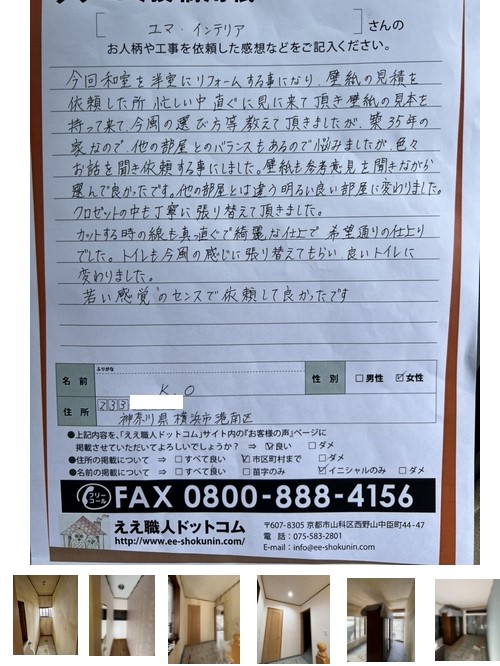 エマ・インテリア さんの
お人柄や工事を依頼した感想などをご記入ください。
今回和室を半室にリフォームする事になり、壁紙の見積を
依頼した所 忙しい中 直ぐに見に来て頂き壁紙の見本を
持って来て、今風の選び方等教えて頂きましたが、築35年の
家なので、他の部屋とのバランスもあるので悩みましたが、色々
お話を聞き依頼する事にしました。壁紙も参考意見を聞きながら
選んで良かったです。他の部屋とは違う明るい良い部屋に変わりました。
クロゼットの中も丁寧に張り替えて頂きました。
カットする時の線も真っ直ぐで綺麗な仕上で 希望通りの仕上り
でした。トイレも今風の感じに張り替えてもらい 良いトイレに
変わりました。
若い感覚のセンスで依頼して良かったです
ふりがな
名前 K.O 性別 □男性 ☑女性
住所 233
神奈川県横浜市港南区
●上記内容を、「ええ職人ドットコム」サイト内の『お客様の声』ページに
掲載させていただいてよろしいでしょうか? ⇒ ☑良い □ダメ
●住所の掲載について ⇒ □すべて良い ☑市区町村まで □ダメ
●名前の掲載について ⇒ □すべて良い □苗字のみ ☑イニシャルのみ □ダメ
フリーコール FAX 0800-888-4156
ええ職人ドットコム
http://www.ee-shokunin.com/
〒607-8305 京都市山科区西野山中臣町44-47
電話：075-583-2801
E-mail：info@ee-shokunin.com